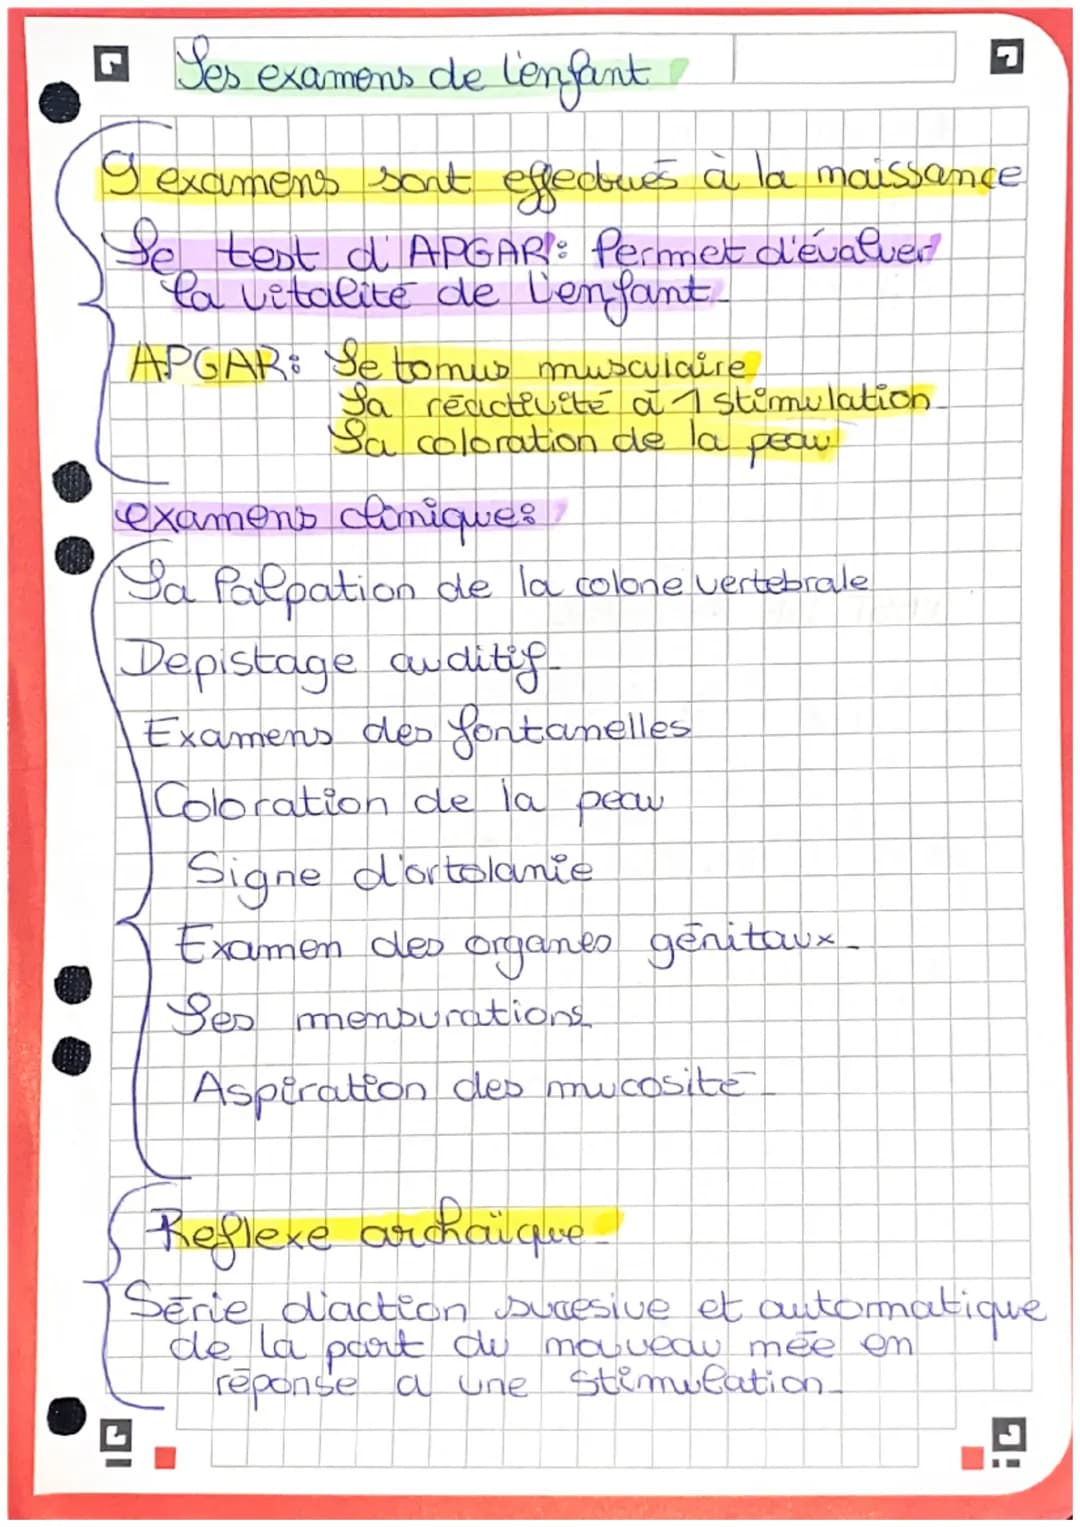 Les examens de l'enfant
9 examens sont effectués à la naissance
Le test d'APGAR: Permet d'évaluer
la vitalité de l'enfant
APGAR: Le tonus musculaire
La réactivité à 1 stimulation
La coloration de la peau
examens cliniques:
La Palpation de la colone vertebrale
Depistage auditif
Examens des fontanelles
Coloration de la peau
Signe d'ortolanie
Examen des organes génitaux
Les mensurations
Aspiration des mucosité
Reflexe archaïque
Série d'action sucesive et automatique
de la part du nouveau née en
réponse a une stimulation